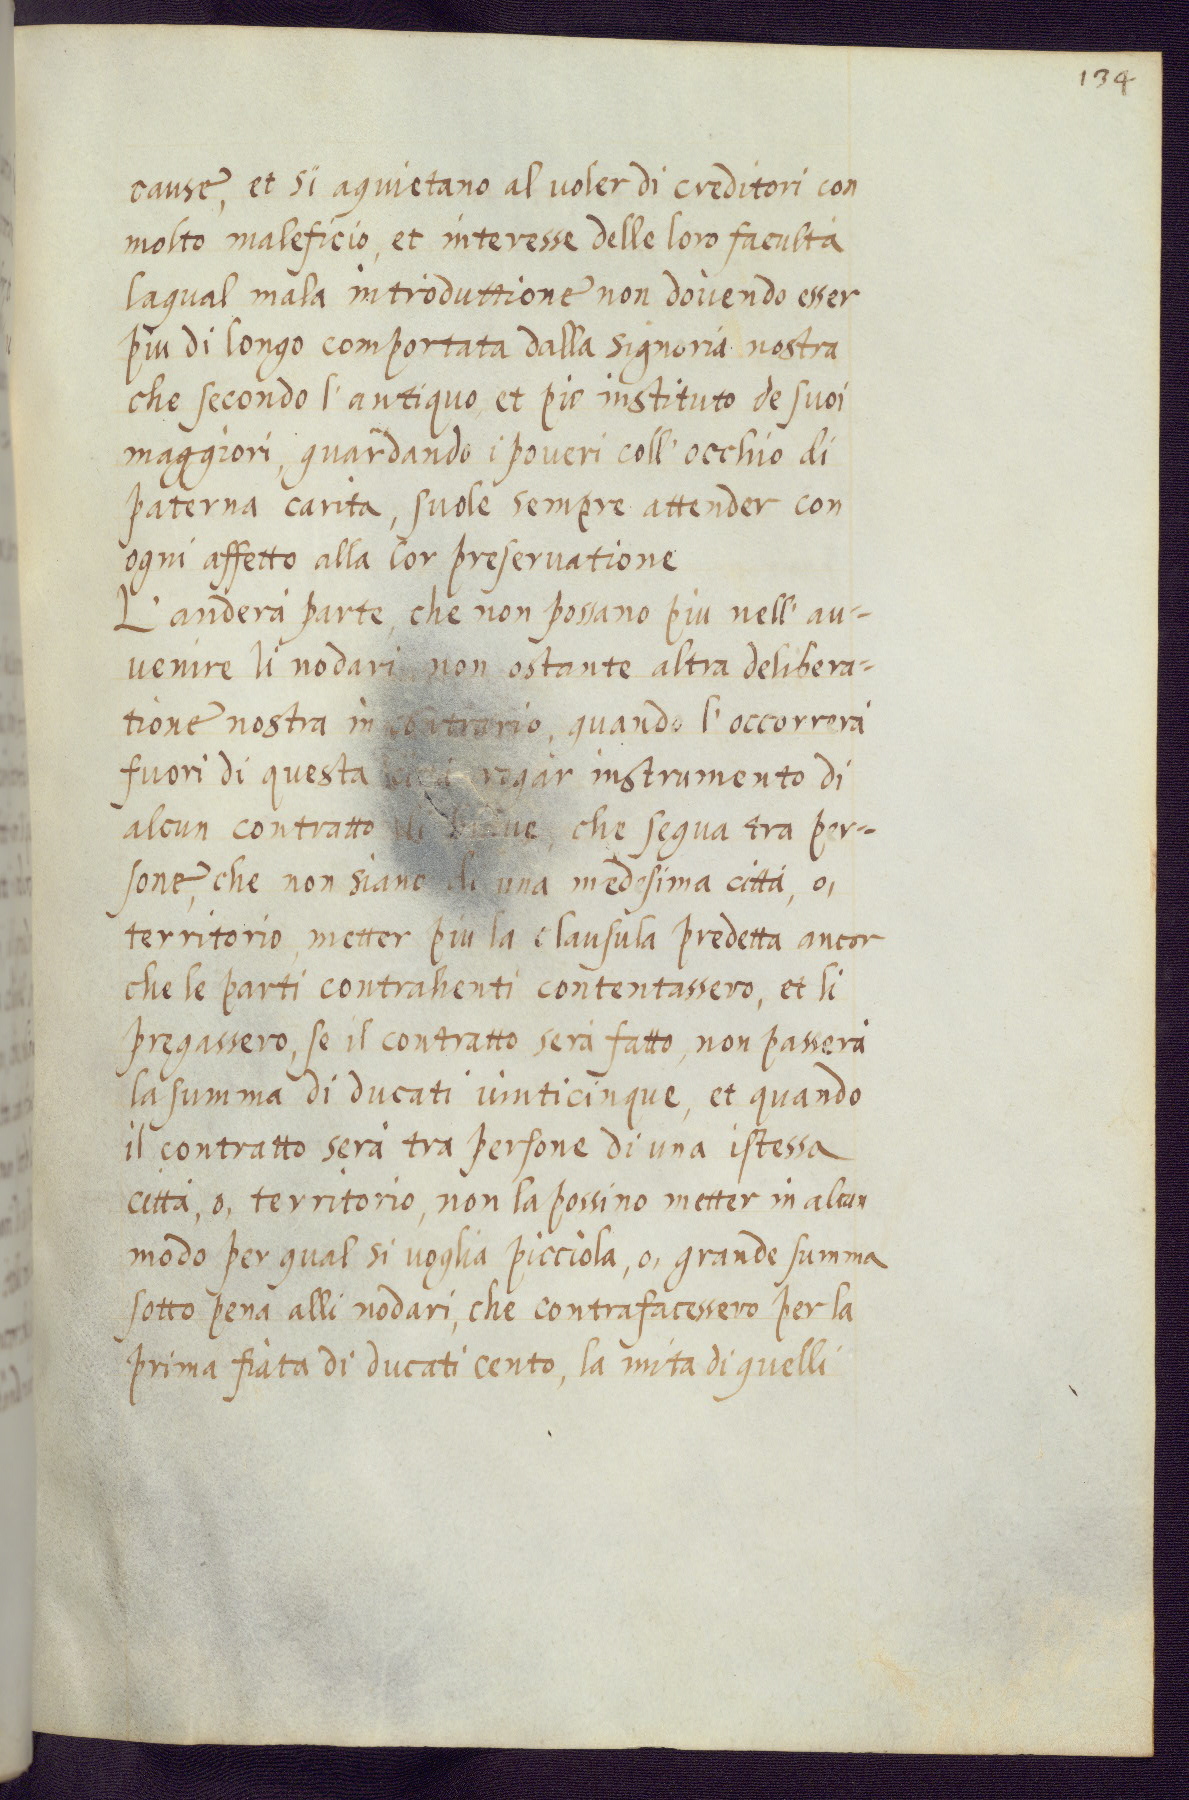 134
cause, et si aquietano al uoler di creditori con
molto maleficio, et interesse delle loro facultà
laqual mala introduttione non douendo esser
piu di longo comportata dalla Signoria nostra
che secondo l'antiquo et pio instituto de suoi
maggiori, guardando i poueri coll'occhio di
paterna carita, suole sempre attender con
ogni affetto alla lor preseruatione
L'anderà parte, che non possano piu nell'au-
uenire li nodari, non ostante altra delibera-
tione nostra in contrario, quando l'occorrerà
fuori di questa città rogar instrumento di
alcun contratto che segua tra per-
sone, che non siano di una medesima città, o,
territorio, metter piu la clausula predetta ancor
che le parti contrahenti contentassero, et li
pregassero, se il contratto serà fatto, non passerà
la summa di ducati uinticinque, et quando
il contratto serà tra persone di una istessa
città, o, territorio, non la possino metter in alcun
modo per qual si uoglia picciola, o, grande summa
sotto pena alli nodari, che contrafacessero per la
prima fiata di ducati cento, la mita di quelli